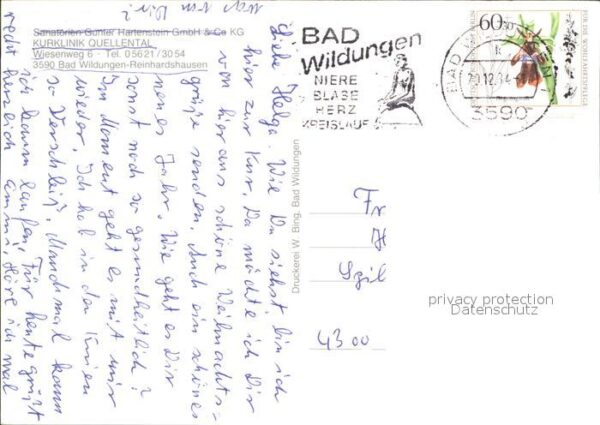 Sanatorien Günter Hartenstein GmbH & Co KG
KURKLINIK QUELLENTAL
Wiesenweg 6 - Tel. 05621/3054
3590 Bad Wildungen-Reinhardshausen
Liebe Helga. Wie Du siehst, bin ich
hier zur Kur. Da möchte ich Dir
von hier aus schöne Weihnachts-
grüße senden. Auch ein schönes
neues Jahr. Wie geht es Dir
sonst noch so gesundheitlich?
Im Moment geht es mit mir
wieder. Ich hab in den Knien
so Verschleiß. Manchmal kann
ich kaum laufen. Für heute grüßt
recht herzlich Höre ich mal
was von Dir?
Druckerei W. Bing, Bad Wildungen
BAD
Wildungen
NIERE
BLASE
HERZ
KREISLAUF
60+30
FÜR DIE WOHLFAHRTSPFLEGE
BAD
3590
Fr
H
4300
privacy protection
Datenschutz